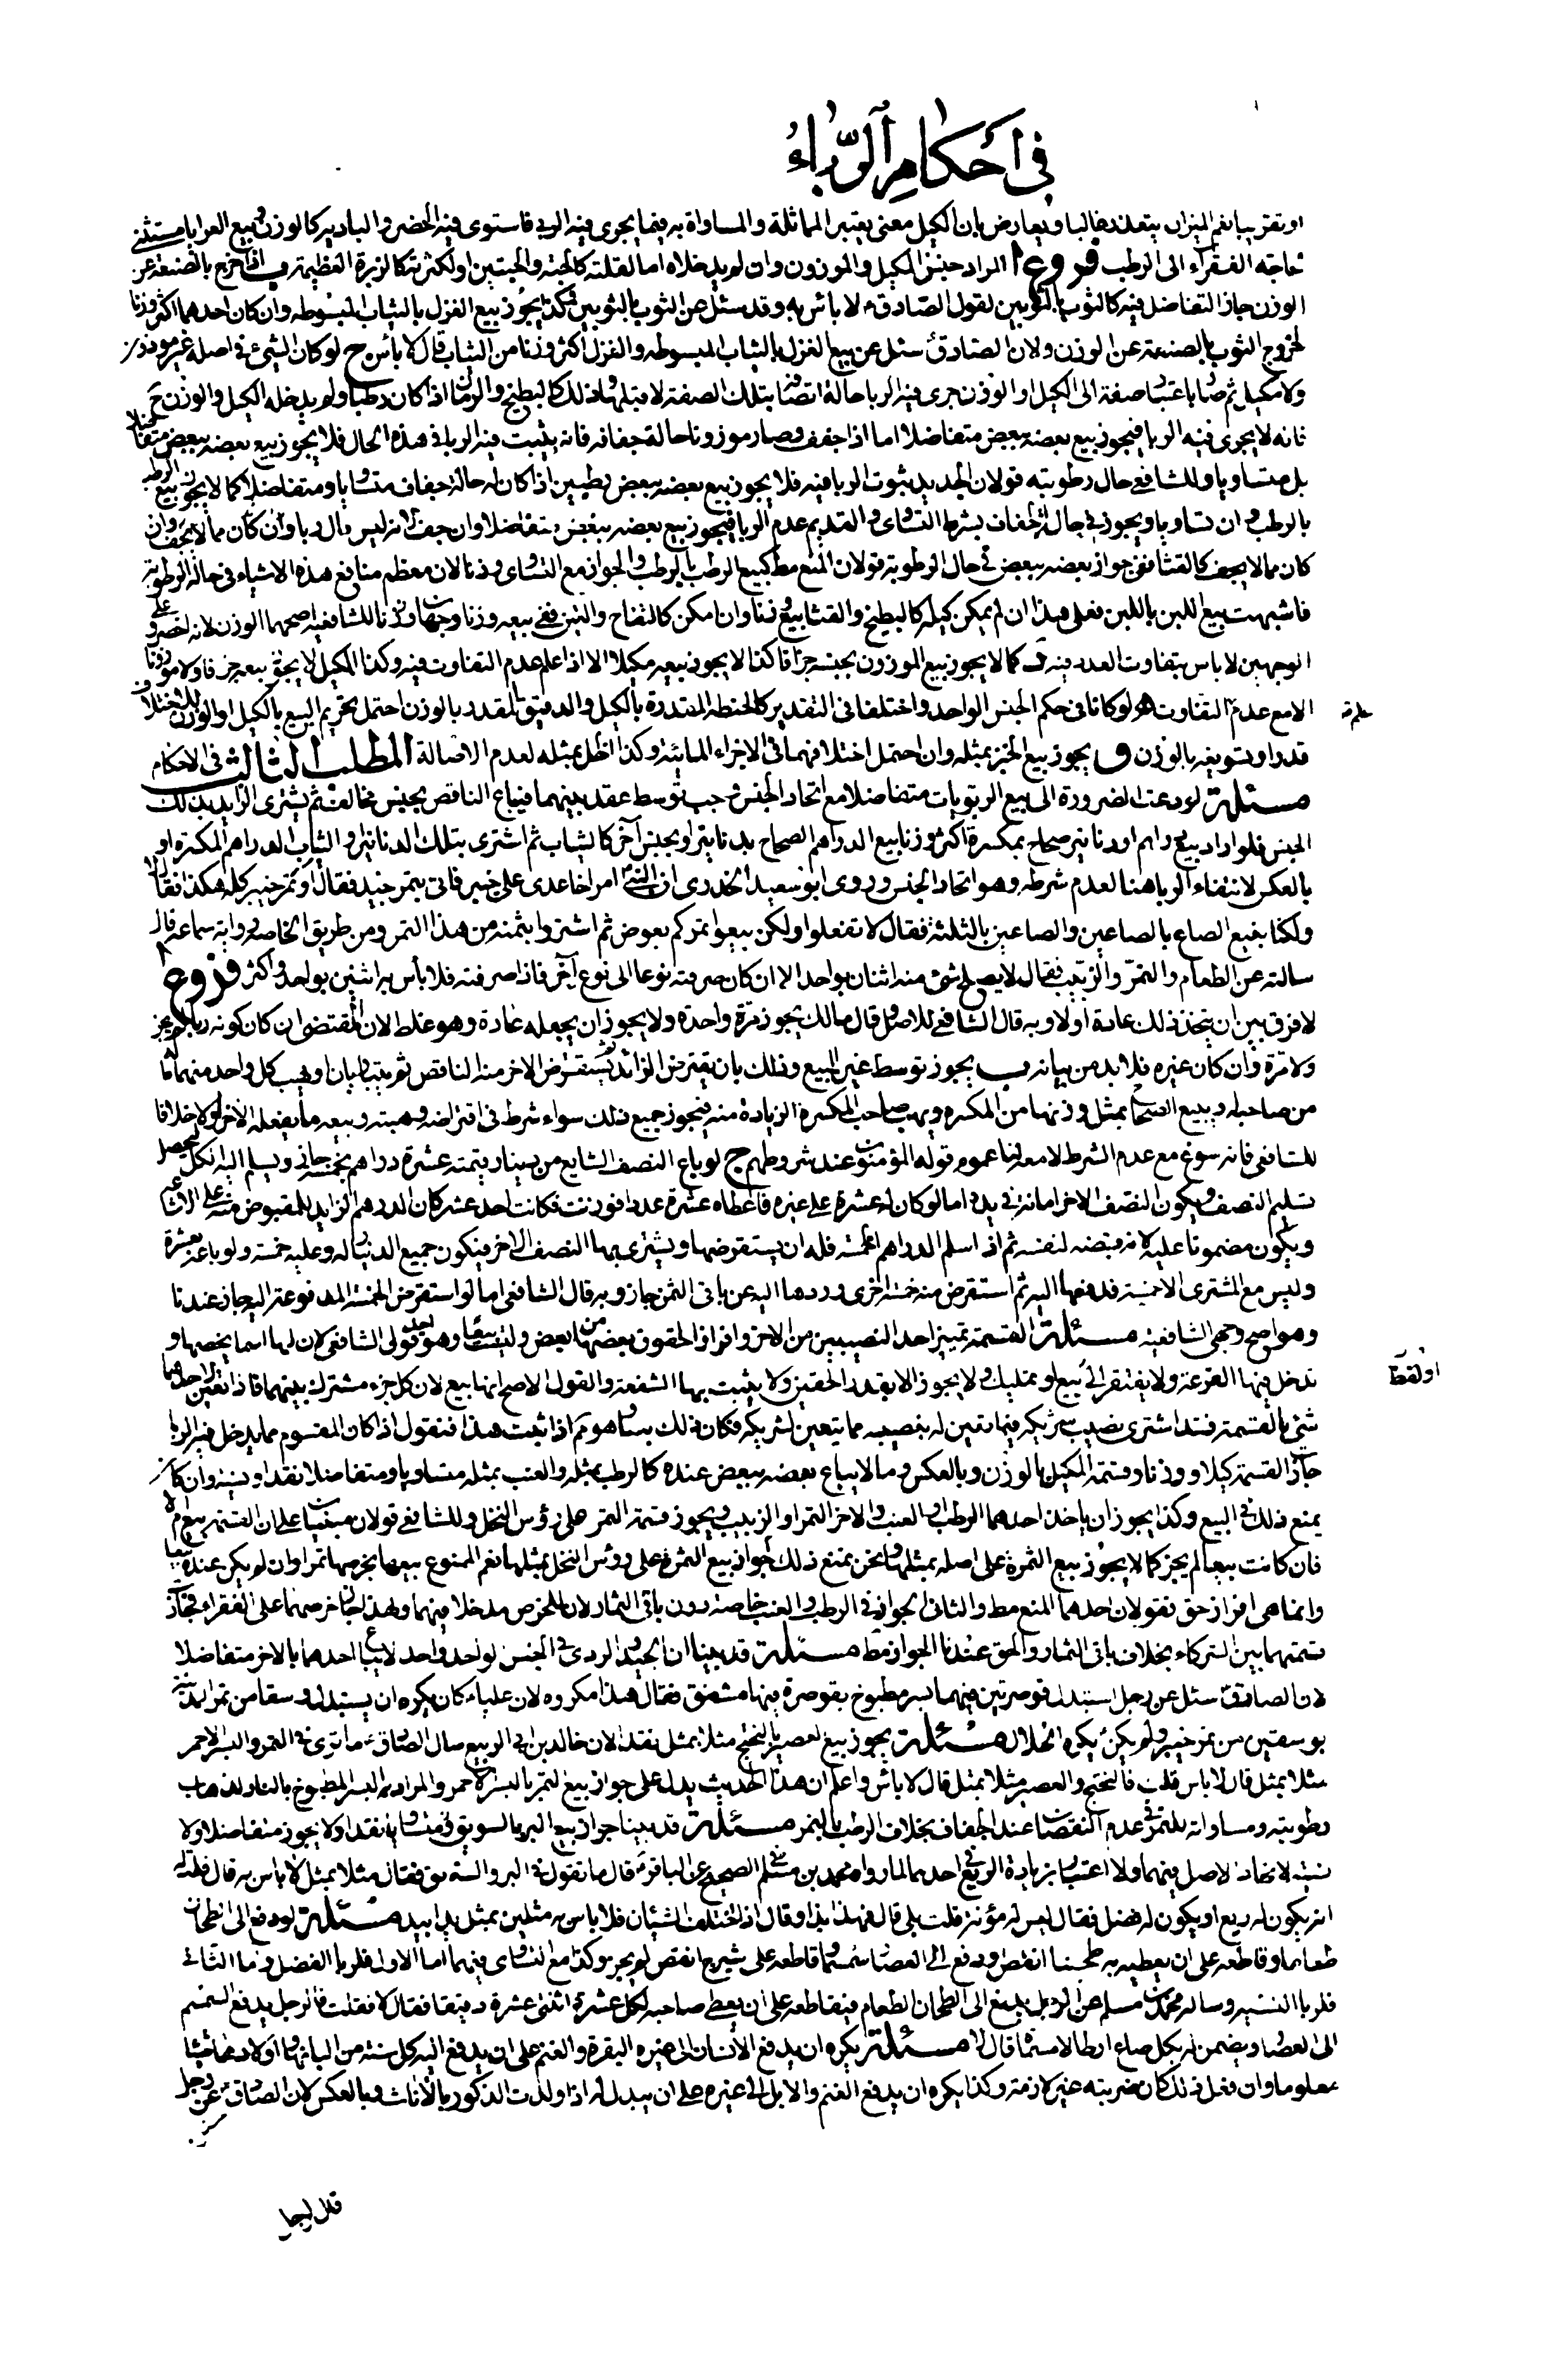 في احكام الرباء
او تقريبا نعم الميزان يتعذر غالبا ويعارض بان الكيل معنى يعتبر المماثلة والمساواة به فيما يجرى فيه الربا فاستوى فيه الحضر والبادية كالوزن وبيع العرايا مستثنى
لحاجة الفقراء الى الرطب فروع ا المراد جنس المكيل والموزون وان لم يدخلاه اما لقلته كالحبة والحبتين او لكثرته كالزبرة العظيمة ب اذا خرج بالصنعة عن
الوزن جاز التفاضل فيه كالثوب بالثوبين لقول الصادق ع لا باس به وقد سئل عن الثوب بالثوبين وكذا يجوز بيع الغزل بالثياب المبسوطة وان كان احدهما اكثر وزنا
لخروج الثوب بالصنعة عن الوزن ولان الصادق ع سئل عن بيع الغزل بالثياب المبسوطة والغزل اكثر وزنا من الثياب قال لا باس ج لو كان الشيء في اصله غير موزون
ولا مكيل ثم صار باعتبار صفة الى الكيل او الوزن جرى فيه الربا حالة اتصافه بتلك الصفة لا قبلها وذلك كالبطيخ والرمان اذا كان رطبا ولم يدخله الكيل والوزن ح
فانه لا يجرى فيه الربا فيجوز بيع بعضه ببعض متفاضلا اما اذا جفف وصار موزونا حالة جفافه فانه يثبت فيه الربا في هذه الحال فلا يجوز بيع بعضه ببعض متفاضلا
بل متساويا وللشافعي حال رطوبته قولان الجديد ثبوت الربا فيه فلا يجوز بيع بعضه ببعض رطبين اذا كان له حالة جفاف متساويا ومتفاضلا كما لا يجوز بيع الرطب
بالرطب وان تساويا ويجوز في حال الجفاف بشرط التساوى والقديم عدم الربا فيجوز بيع بعضه ببعض متفاضلا وان جفف لانه ليس مال ربا وان كان مما لا يجفف وان
كان مما لا يجفف كالقثا ففي جواز بعضه ببعض في حال الرطوبة قولان المنع مط كبيع الرطب بالرطب والجواز مع التساوى وزنا لان معظم منافع هذه الاشياء في حالة الرطوبة
فاشبهت بيع اللبن باللبن فعلى هذا ان لم يمكن كيله كالبطيخ والقثا بيع وزنا وان امكن كالتفاح والتين ففي بيعه وزنا وجهان للشافعية اصحهما الوزن لانه اخصر وعلى
الوجهين لا باس بتفاوت العدد فيه د كما لا يجوز بيع الموزون بجنسه جزافا كذا لا يجوز بيعه مكيلا الا اذا علم عدم التفاوت فيه وكذا المكيل لا يجوز بيعه جزافا ولا موزونا
الا مع عدم التفاوت ه لو كانا في حكم الجنس الواحد واختلفا في التقدير كالحنطة المقدرة بالكيل والدقيق المقدر بالوزن احتمل تحريم البيع بالكيل او الوزن للاختلاف
علم ته
قدرا وتسويغه بالوزن و يجوز بيع الخبز بمثله وان احتمل اختلافهما في الاجزاء المائية وكذا الخل بمثله لعدم الاضالة المطلب الثالث في الاحكام
مسئلة لو دعت الضرورة الى بيع الربويات متفاضلا مع اتحاد الجنس وجب توسط عقد بينهما فيباع الناقص بجنس مخالف ثم يشترى الزايد بذلك
الجنس فلو اراد بيع دراهم او دنانير صحاح بمكسرة اكثر وزنا بيع الدراهم الصحاح بدنانير او بجنس آخر كالثياب ثم اشترى بتلك الدنانير والثياب الدراهم المكسرة او
بالعكس لانتفاء الربا هنا لعدم شرطه وهو اتحاد الجنس وروى ابو سعيد الخدرى ان النبي امر اخا عدى على خيبر فاتى بتمر جنيب فقال او تمر خيبر كله هكذا فقال لا
ولكنا نبيع الصاع بالصاعين والصاعين بالثلثة فقال لا تفعلوا ولكن بيعوا تمركم بعوض ثم اشتروا بثمنه من هذا التمر ومن طريق الخاصة رواية سماعة قال
سالته عن الطعام والتمر والزبيب فقال لا يصلح شئ منه اثنان بواحد الا ان كان صرفته نوعا الى نوع آخر فاذا صرفته فلا بأس به اثنين بواحد واكثر فروع ا
لا فرق بين ان يتخذ ذلك عادة اولا وبه قال الشافعي للاصل وقال مالك يجوز مرة واحدة ولا يجوز ان يجعله عادة وهو غلط لان المقتضى ان كان كونه ربا لم يجز
ولا مرة وان كان غيره فلا بد من بيانه ب يجوز توسط غير البيع وذلك بان يقترض الزائد ثم يستقرض الاخر منه الناقص ثم يتباريان او يهب كل واحد منهما ماله
من صاحبه او يبيع الصحاح بمثل وزنها من المكسرة ويهب صاحب المكسرة الزيادة منه فيجوز جميع ذلك سواء شرط في اقتراضه وهبته وبيعه ما يفعله الاخر اولا خلافا
للشافعي فانه سوغ مع عدم الشرط لا معه لنا عموم قوله المؤمنون عند شروطهم ج لو باع النصف الشايع من دينار بثمنه عشرة دراهم بخمسة جاز ويسلم اليه الكل ليحصل
تسليم النصف ويكون النصف الاخر امانة في يده اما لو كان له عشرة على غيره فاعطاه عشرة عددا فوزنت فكانت احد عشر كان الدرهم الزايد للمقبوض منه على الاشاعة
ويكون مضمونا عليه لانه قبضه لنفسه ثم اذا سلم الدراهم الخمسة فله ان يستقرضها ويشترى بها النصف الاخر فيكون جميع الدينار له وعليه خمسة ولو باعه بعشرة
وليس مع المشترى الا خمسة فدفعها اليه ثم استقرض منه خمسة اخرى وردها اليه عن باقى الثمن جاز وبه قال الشافعي اما لو استقرض الخمسة المدفوعة اليه جاز عندنا
وهو اصح وجهى الشافعية مسئلة القسمة تمييز احد النصيبين من الاخر وافراز الحقوق بعضها من بعض وليست بيعا وهو احد قولى الشافعي لان لها اسما يخصها و
تدخل فيها القرعة ولا يفتقر الى بيع او تمليك ولا يجوز الا بقدر الحقين ولا يثبت بها الشفعة والقول الاصح انها بيع لان كل جزء مشترك بينهما فاذا تعين لاحدهما
او لفظ
شئ بالقسمة فقد اشترى نصيب شريكه فيما تعين له بنصيبه مما يتعين لشريكه فكان ذلك بيعا وهو مم اذا ثبت هذا فنقول اذا كان المقسوم مما يدخل فيه الربا
جازت القسمة كيلا ووزنا وقسمة المكيل بالوزن وبالعكس وما لا يباع بعضه ببعض عنده كالرطب بمثله والعنب بمثله متساويا ومتفاضلا نقدا ونسية وان كان
يمنع ذلك في البيع وكذا يجوز ان ياخذ احدهما الرطب او العنب والاخر التمر او الزبيب ويجوز قسمة الثمر على رؤس النخل وللشافعي قولان مبنيان على ان القسمة بيع ام لا
فان كانت بيعا لم يجز كما لا يجوز بيع الثمرة على اصله بمثلها ونحن نمنع ذلك لجواز بيع الثمرة على رؤس النخل بمثلها نعم الممنوع بيعها بخرصها تمرا وان لم يكن عنده بيعا
وانما هي افراز حق فقولان احدهما المنع مط والثاني الجواز في الرطب والعنب خاصة دون باقى الثمار لان للخرص مدخلا فيهما ولهذا جاز خرصهما على الفقراء فجاز
قسمتهما بين الشركاء بخلاف باقى الثمار والحق عندنا الجواز مط مسئلة قد بينا ان الجيد والردى في الجنس الواحد واحد لا يباع احدهما بالاخر متفاضلا
لان الصادق ع سئل عن رجل استبدل قوصرتين فيهما بسر مطبوخ بقوصرة فيها مشقق فقال هذا مكروه لان علياء كان يكره ان يستبدل وسقا من تمر المدينة
بوسقين من تمر خيبر ولم يكن يكره الحلال مسئلة يجوز بيع العصير بالبختج مثلا بمثل نقدا لان خالد بن ابي الربيع سال الصادق ع ما ترى في التمر والبسر الاحمر
مثلا بمثل قال لا باس قلت فالبختج والعصير مثلا بمثل قال لا باس واعلم ان هذا الحديث يدل على جواز بيع التمر بالبسر الاحمر والمراد به البسر المطبوخ بالنار لذهاب
رطوبته ومساواته للتمر في عدم النقصان عند الجفاف بخلاف الرطب بالتمر مسئلة قد بينا جواز بيع البر بالسويق متساويا نقدا ولا يجوز متفاضلا ولا
نسية لاتحاد الاصل فيهما ولا اعتبار بزيادة الريع في احدهما لما رواه محمد بن مسلم في الصحيح عن الباقر ع قال ما تقول في البر والسويق فقال مثلا بمثل لا باس به قال قلت له
انه يكون له ريع او يكون له فضل فقال ليس له مؤنة قلت بلى قال فهذا بذا وقال اذا اختلف الشيئان فلا باس به مثلين بمثل يدا بيد مسئلة لو دفع الى الطحان
طعاما وقاطعه على ان يعطيه به طحينا انقص او دفع الى العصار سمسما وقاطعه على شيرج انقص لم يجز وكذا مع التساوى فيهما اما الاول فلربا الفضل واما الثاني
فلربا النسية وساله محمد بن مسلم عن الرجل يدفع الى الطحان الطعام فيقاطعه على ان يعطى صاحبه لكل عشرة اثنى عشرة دقيقا فقال لا فقلت فالرجل يدفع السمسم
الى العصار ويضمن له بكل صاع ارطالا مسماة قال لا مسئلة يكره ان يدفع الانسان الى غيره البقرة والغنم على ان يدفع اليه كل سنة من البانها واولادها شيئا
معلوما وان فعل ذلك كان ضريبته غير لازمة وكذا يكره ان يدفع الغنم والابل الى غيره على ان يبدل له اذا ولدت الذكور بالاناث وبالعكس لان الصادق ع سئل عن رجل
قال لرجل